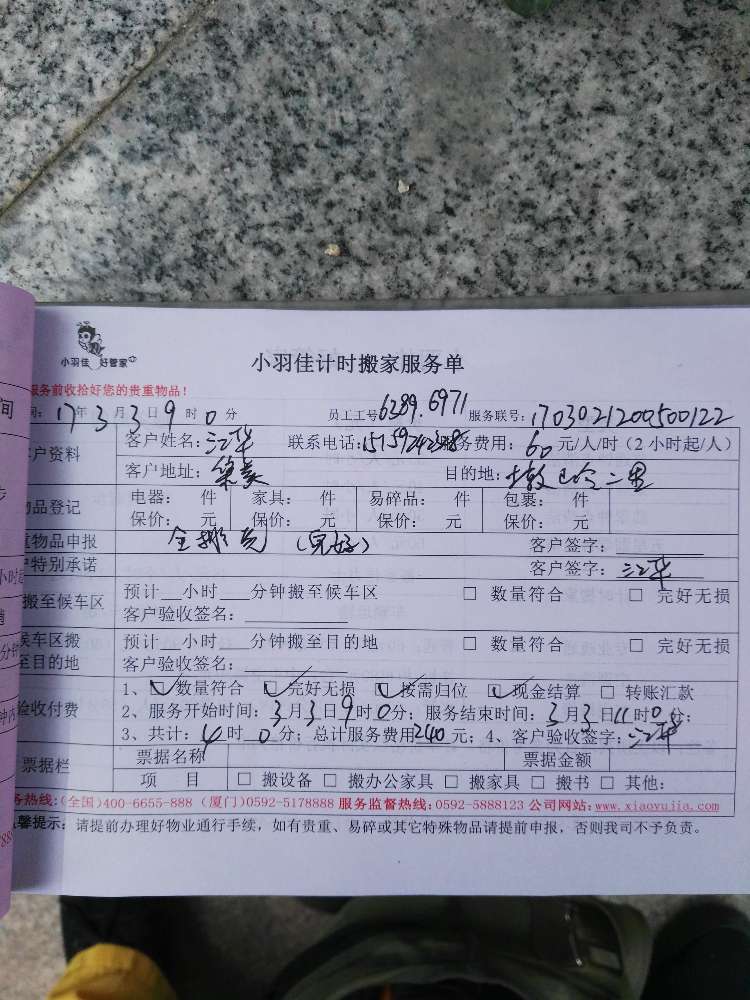 小羽佳 好管家
小羽佳计时搬家服务单
服务前收拾好您的贵重物品！
间：17年3月3日9时0分 员工工号6289.6971 服务联号：170302120050122
客户资料 客户姓名：江华 联系电话：15159242385 服务费用：60元/人/时（2小时起/人）
客户地址：集美 目的地：
物品登记 电器： 件 家具： 件 易碎品： 件 包裹： 件
保价： 元 保价： 元 保价： 元 保价： 元
重物品申报 （完好） 客户签字：
户特别承诺 客户签字：江华
搬至候车区 预计 小时 分钟搬至候车区 □ 数量符合 □ 完好无损
客户验收签名：
候车区搬至目的地 预计 小时 分钟搬至目的地 □ 数量符合 □ 完好无损
客户验收签名：
验收付费 1、☑数量符合 ☑完好无损 ☑按需归位 ☑现金结算 □ 转账汇款
2、服务开始时间：3月3日9时0分；服务结束时间：3月3日11时0分；
3、共计：4时0分；总计服务费用240元；4、客户验收签字：江华
票据栏 票据名称 票据金额
项 目 □ 搬设备 □ 搬办公家具 □ 搬家具 □ 搬书 □ 其他：
务热线：(全国)400-6655-888（厦门）0592-5178888 服务监督热线：0592-5888123 公司网站：www.xiaoyujia.com
温馨提示：请提前办理好物业通行手续，如有贵重、易碎或其它特殊物品请提前申报，否则我司不予负责。